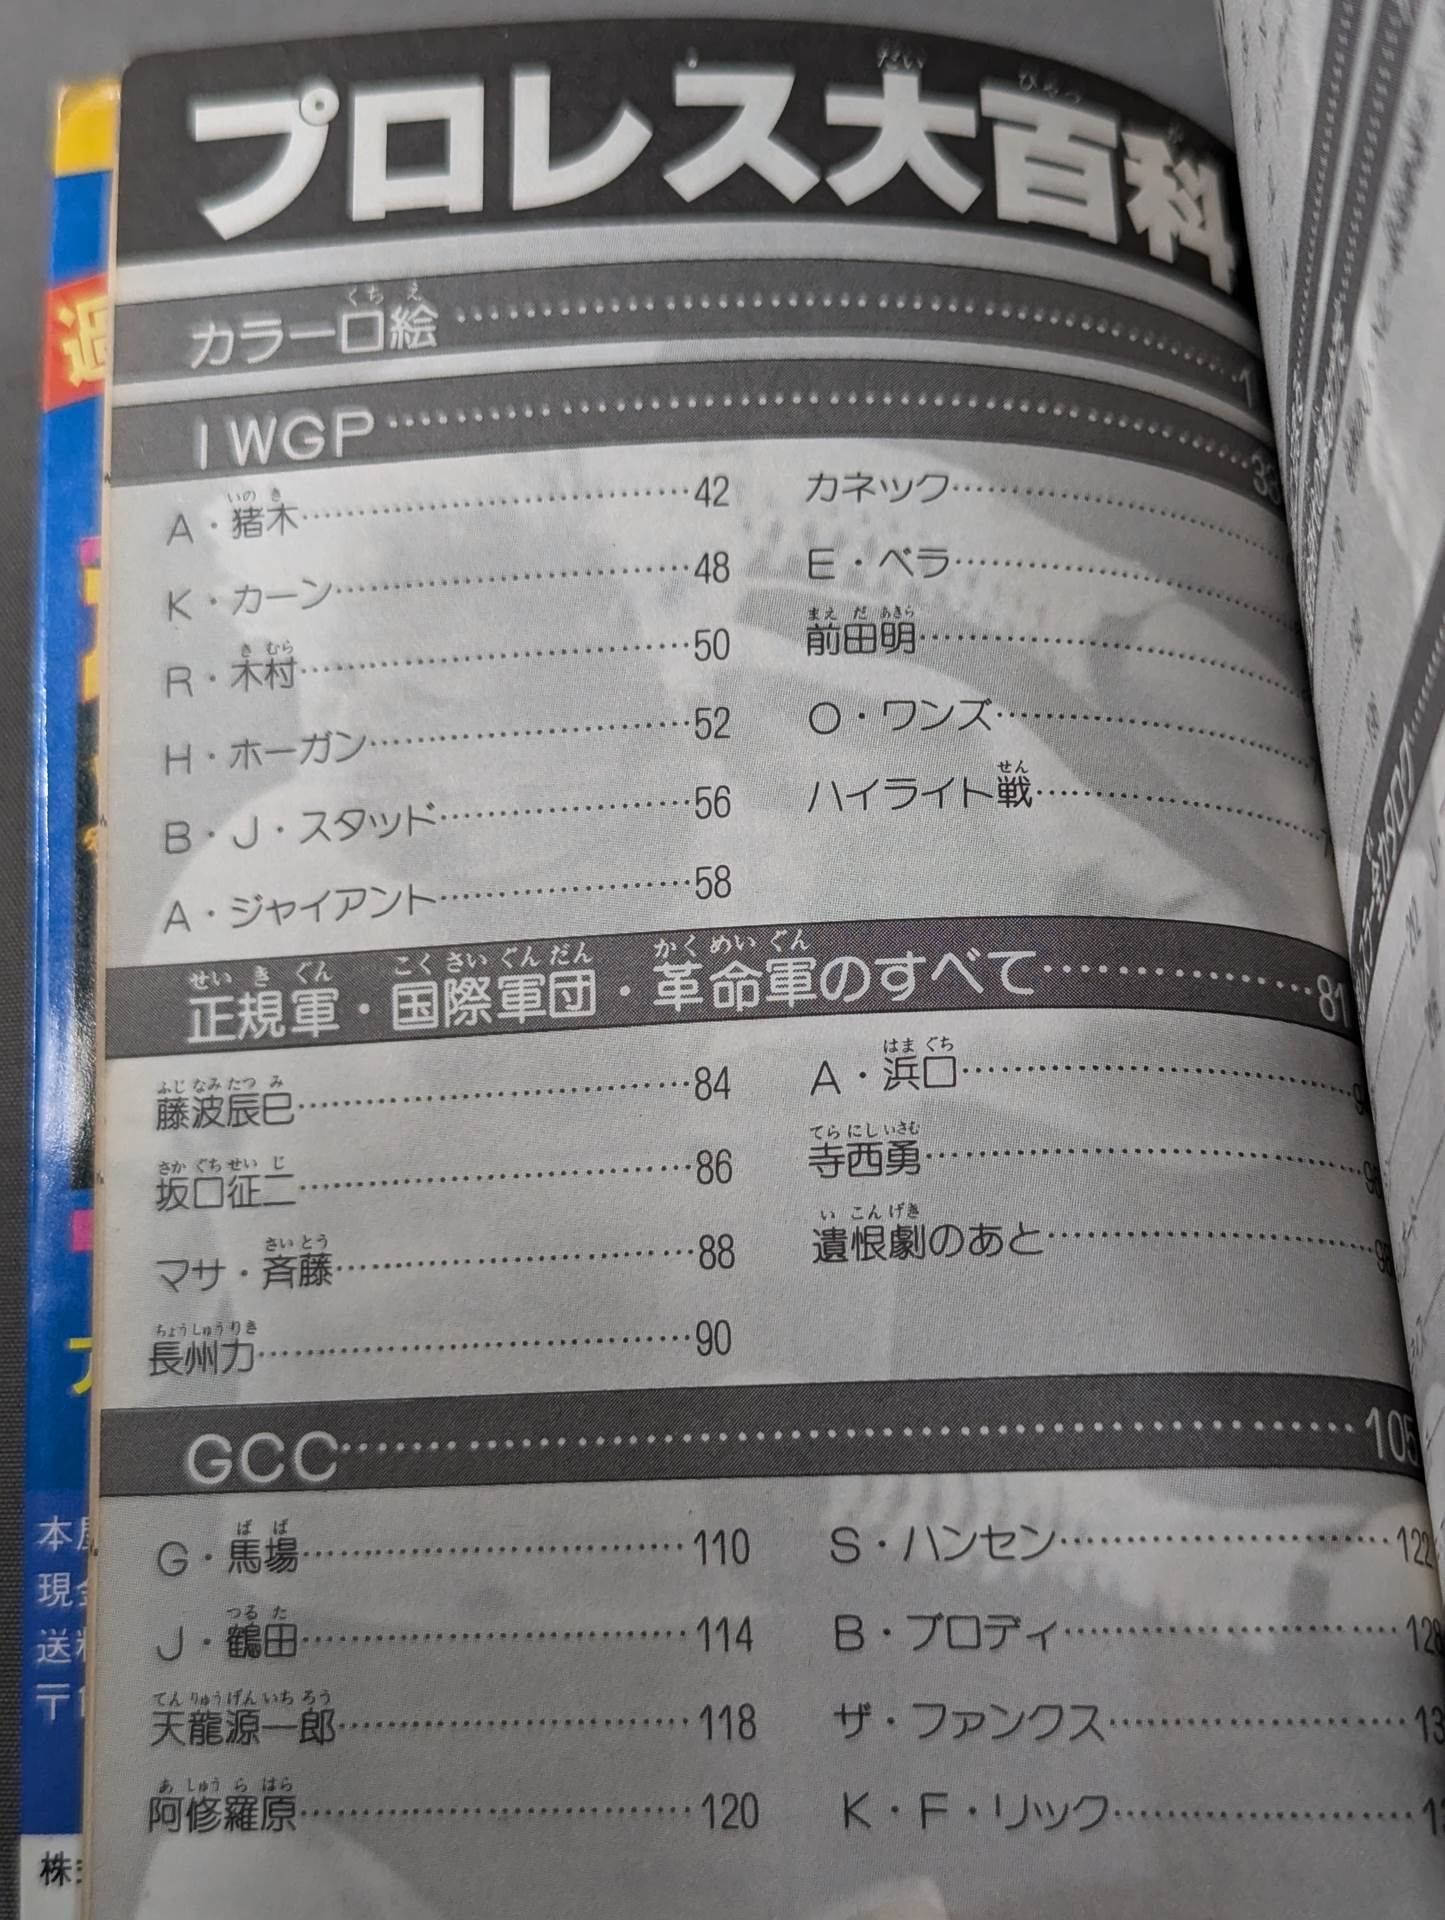 プロレス大百科
カラー口絵……1
IWGP……
A・猪木……42
K・カーン……48
R・木村……50
H・ホーガン……52
B・J・スタッド……56
A・ジャイアント……58
カネック……
E・ベラ……
前田明……
O・ワンズ……
ハイライト戦……
正規軍・国際軍団・革命軍のすべて……81
藤波辰巳……84
坂口征二……86
マサ・斉藤……88
長州力……90
A・浜口……
寺西勇……
遺恨劇のあと……
GCC……105
G・馬場……110
J・鶴田……114
天龍源一郎……118
阿修羅原……120
S・ハンセン……122
B・ブロディ……
ザ・ファンクス……
K・F・リック……